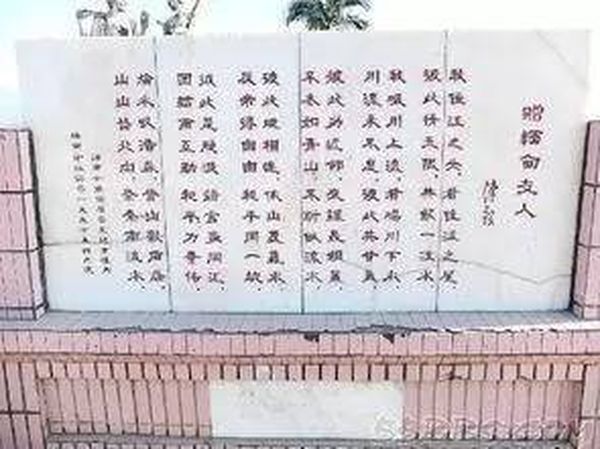 赠缅甸友人
陈毅
我住江之头,君住江之尾,
彼此情无限,共饮一江水,
我吸川上流,君喝川下水,
川流永不息,彼此共甘美,
彼此为近邻,友谊长积累,
不老如青山,不断似流水,
彼此地相连,依山复靠水,
反帝得自由,和平同一轨,
彼此是胞波,语言多同汇,
团结而互助,和平力量伟,
临水叹浩淼,登山歌石磊,
山山皆北向,条条南流水,